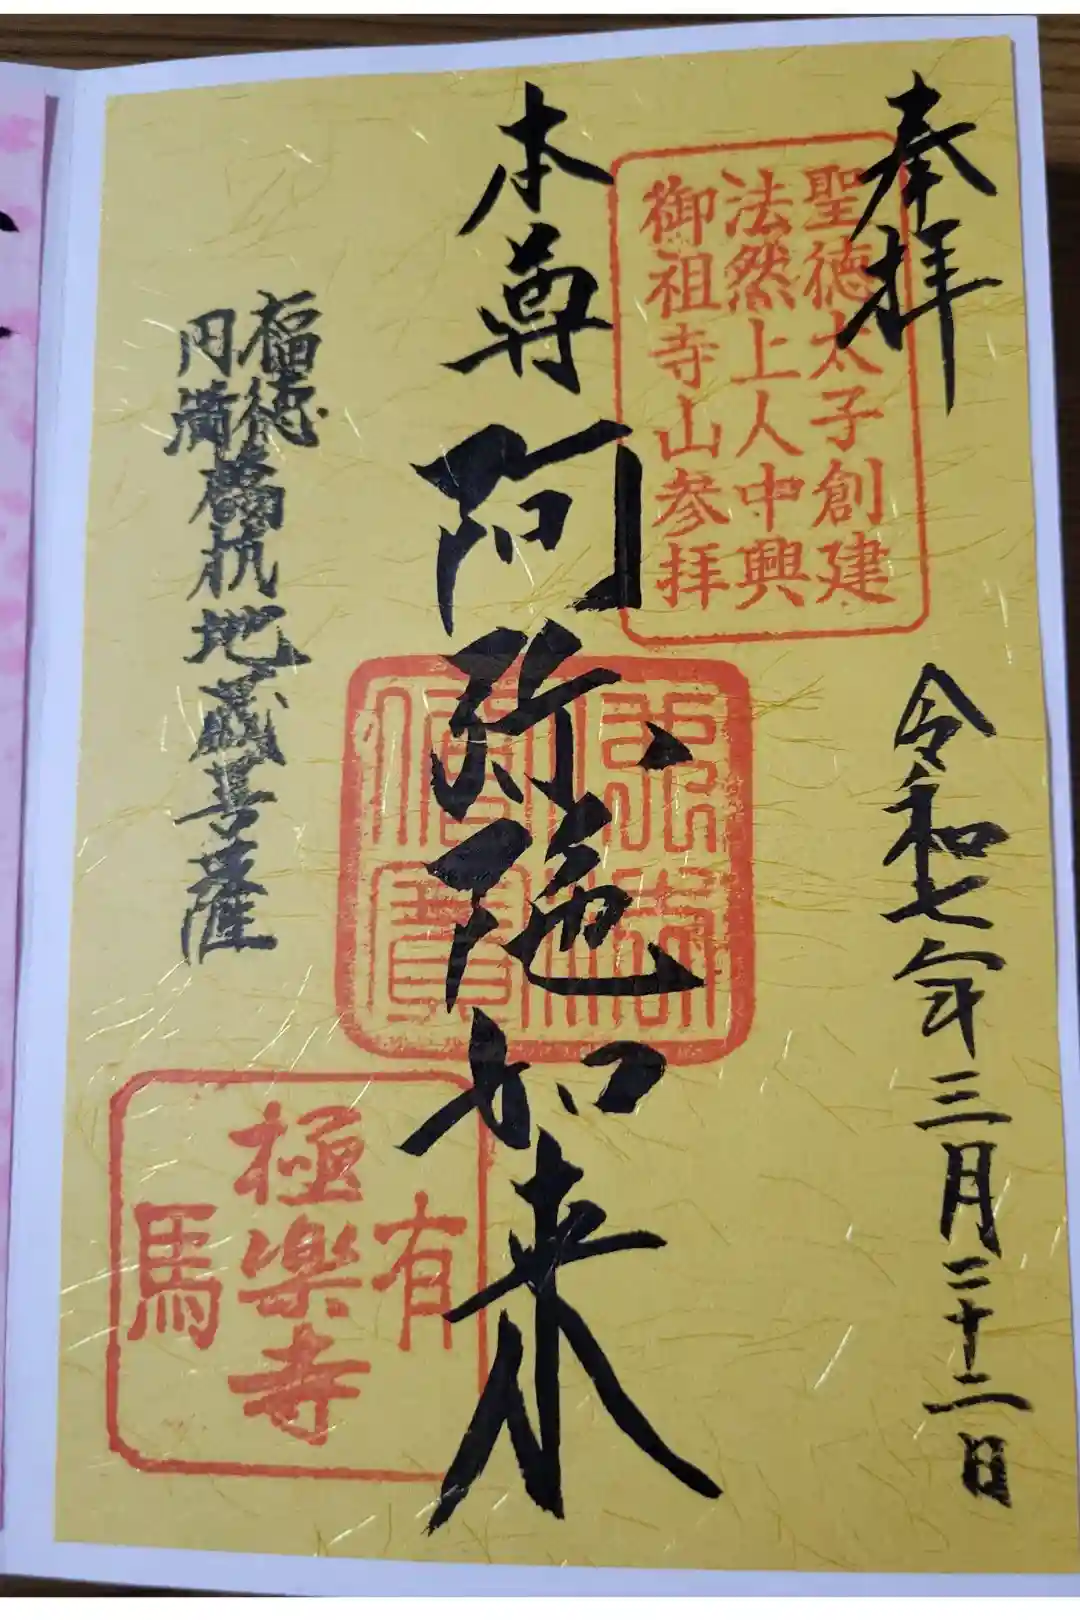 奉拝
聖徳太子創建
法然上人中興
御祖寺山参拝
令和七年三月二十二日
本尊 阿弥陀如来
佛法
僧寶
福徳
円満
地蔵菩薩
有
極楽寺
馬